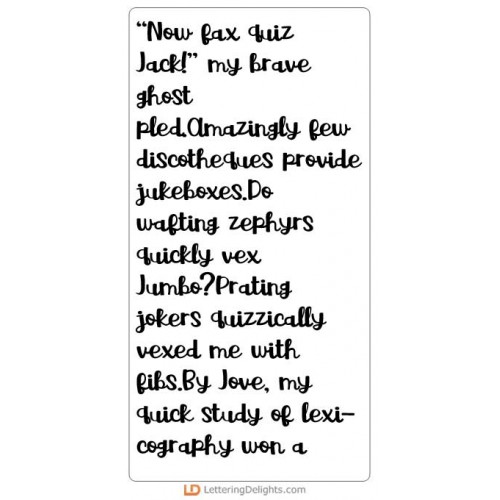 “Now fax quiz
Jack!” my brave
ghost
pled.Amazingly few
discotheques provide
jukeboxes.Do
wafting zephyrs
quickly vex
Jumbo?Prating
jokers quizzically
vexed me with
fibs.By Jove, my
quick study of lexi-
cography won a
LD LetteringDelights.com